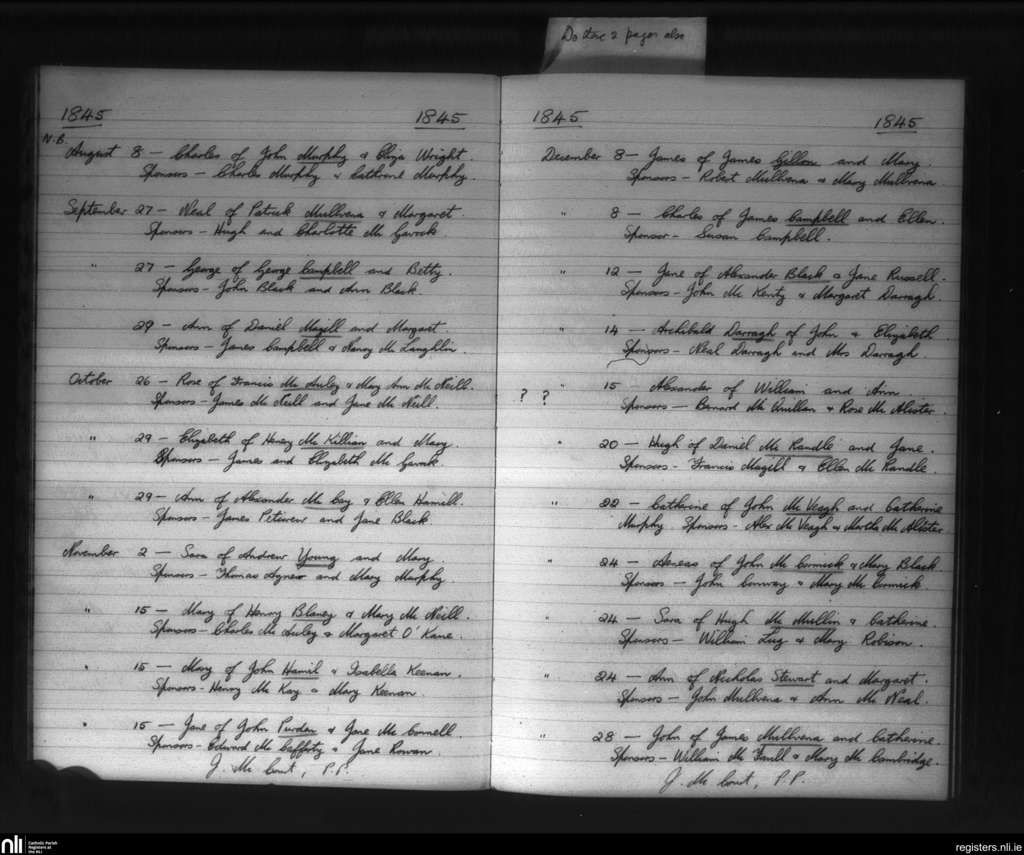 Do these 2 pages also
1845 1845
N.B.
August 8 — Charles of John Murphy & Eliza Wright.
Sponsors — Charles Murphy & Cathrine Murphy.
September 27 — Neal of Patrick Mullvena & Margaret.
Sponsors — Hugh and Charlotte Mc Gavock.
" 27 — George of George Campbell and Betty.
Sponsors — John Black and Ann Black.
29 — Ann of Daniel Magill and Margaret.
Sponsors — James Campbell & Nancy Mc Laughlin.
October 26 — Rose of Francis Mc Auley & Mary Ann Mc Neill.
Sponsors — James Mc Neill and Jane Mc Neill.
" 29 — Elizabeth of Henry Mc Killian and Mary.
Sponsors — James and Elizabeth Mc Gavock.
" 29 — Ann of Alexander Mc Cay & Ellen Hamill.
Sponsors — James Peticrew and Jane Black.
November 2 — Sara of Andrew Young and Mary.
Sponsors — Thomas Agnew and Mary Murphy.
" 15 — Mary of Henry Blaney & Mary Mc Neill.
Sponsors — Charles Mc Auley & Margaret O'Kane.
" 15 — Mary of John Hamil & Isabella Keenan.
Sponsors — Henry Mc Kay & Mary Keenan.
" 15 — Jane of John Purden & Jane Mc Connell.
Sponsors — Edward Mc Cafferty & Jane Rowan.
J. Mc Court, P.P.
1845 1845
December 8 — James of James Gillon and Mary.
Sponsors — Robert Mullvena & Mary Mullvena.
" 8 — Charles of James Campbell and Ellen.
Sponsor — Susan Campbell.
" 12 — Jane of Alexander Black & Jane Russell.
Sponsors — John Mc Kenty & Margaret Darragh.
" 14 — Archibald Darragh of John & Elizabeth.
Sponsors — Neal Darragh and Mrs Darragh.
? ? " 15 Alexander of William and Ann.
Sponsors — Bernard Mc Quillan & Rose Mc Alister.
" 20 — Hugh of Daniel Mc Randle and Jane.
Sponsors — Francis Magill & Ellen Mc Randle.
" 22 — Catharine of John Mc Veagh and Catharine
Murphy Sponsors — Alex Mc Veagh & Martha Mc Alister
" 24 — Aeneas of John Mc Cormick & Mary Black.
Sponsors — John Conway & Mary Mc Cormick.
24 — Sara of Hugh Mc Mullin & Catherine.
Sponsors — William & Mary Robison.
" 24 — Ann of Nicholas Stewart and Margaret.
Sponsors — John Mullvena & Ann Mc Neal.
" 28 — John of James Mullvena and Catharine.
Sponsors — William Mc Faull & Mary Mc Cambridge.
J. Mc Court, P.P.
nli Catholic Parish
Registers at
the NLI
registers.nli.ie